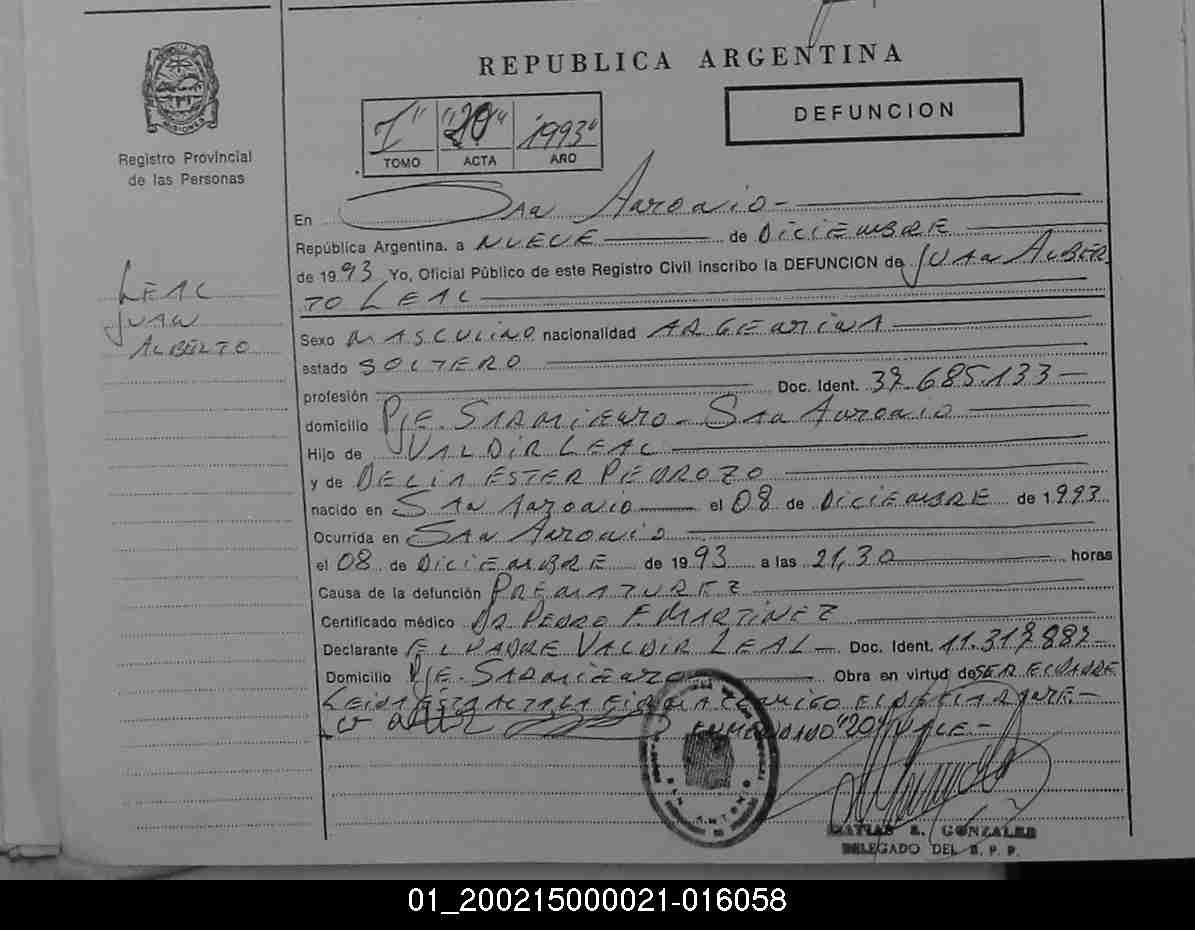 REPUBLICA ARGENTINA
DEFUNCION
MISIONES
Registro Provincial
de las Personas
1" "20" 1993"
TOMO ACTA AÑO
En San Antonio -
República Argentina, a NUEVE de DICIEMBRE
de 1993 Yo, Oficial Público de este Registro Civil inscribo la DEFUNCION de JUAN ALBER
TO LEAL
LEAL
JUAN
ALBERTO
Sexo MASCULINO nacionalidad ARGENTINA
estado SOLTERO
profesión Doc. Ident. 37.685.133 -
domicilio PJE. SARMIENTO - SAN ANTONIO
Hijo de VALDIR LEAL
y de DELIA ESTER PEDROZO
nacido en SAN ANTONIO el 08 de DICIEMBRE de 1993
Ocurrida en SAN ANTONIO
el 08 de DICIEMBRE de 1993 a las 21,30 horas
Causa de la defunción PREMATUREZ
Certificado médico DR PEDRO F. MARTINEZ
Declarante EL PADRE VALDIR LEAL - Doc. Ident. 11.317.887 -
Domicilio PJE. SARMIENTO Obra en virtud de SER EL PADRE
LEIDA ESTA ACTA LA FIRMA CONMIGO EL DECLARANTE -
ENMENDADO "20" VALE -
SAN ANTONIO
MATIAS E. GONZALEZ
DELEGADO DEL R. P. P.
01_200215000021-016058